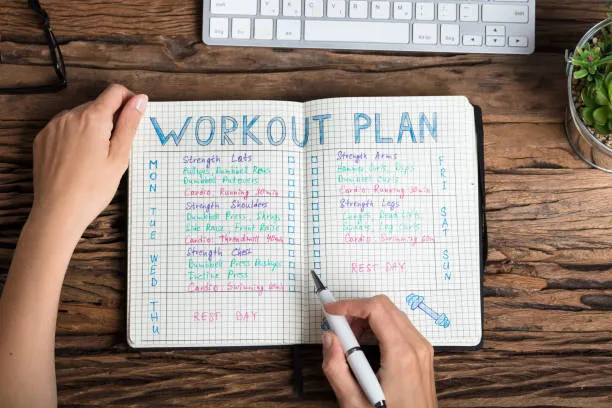 WORKOUT PLAN
MON
Strength Lats
Pullups, Dumbbell Rows
Dumbbell Pullovers
Cardio: Running 30min
TUE
Strength Shoulders
Dumbbell Press, Shrugs
Side Raise, Front Raise
Cardio: Threadmill 40min
WED
Strength Chest
Dumbbell Press Pushups
Incline Press
Cardio: Swimming 60m
THU
REST DAY
FRI
Strength Arms
Hammer Curls, Dips
Dumbbell Curls
Cardio: Running 30min
SAT
Strength Legs
Lunges, Dead Lifts
Squats, Leg Curls
Cardio: Swimming 60m
SUN
REST DAY